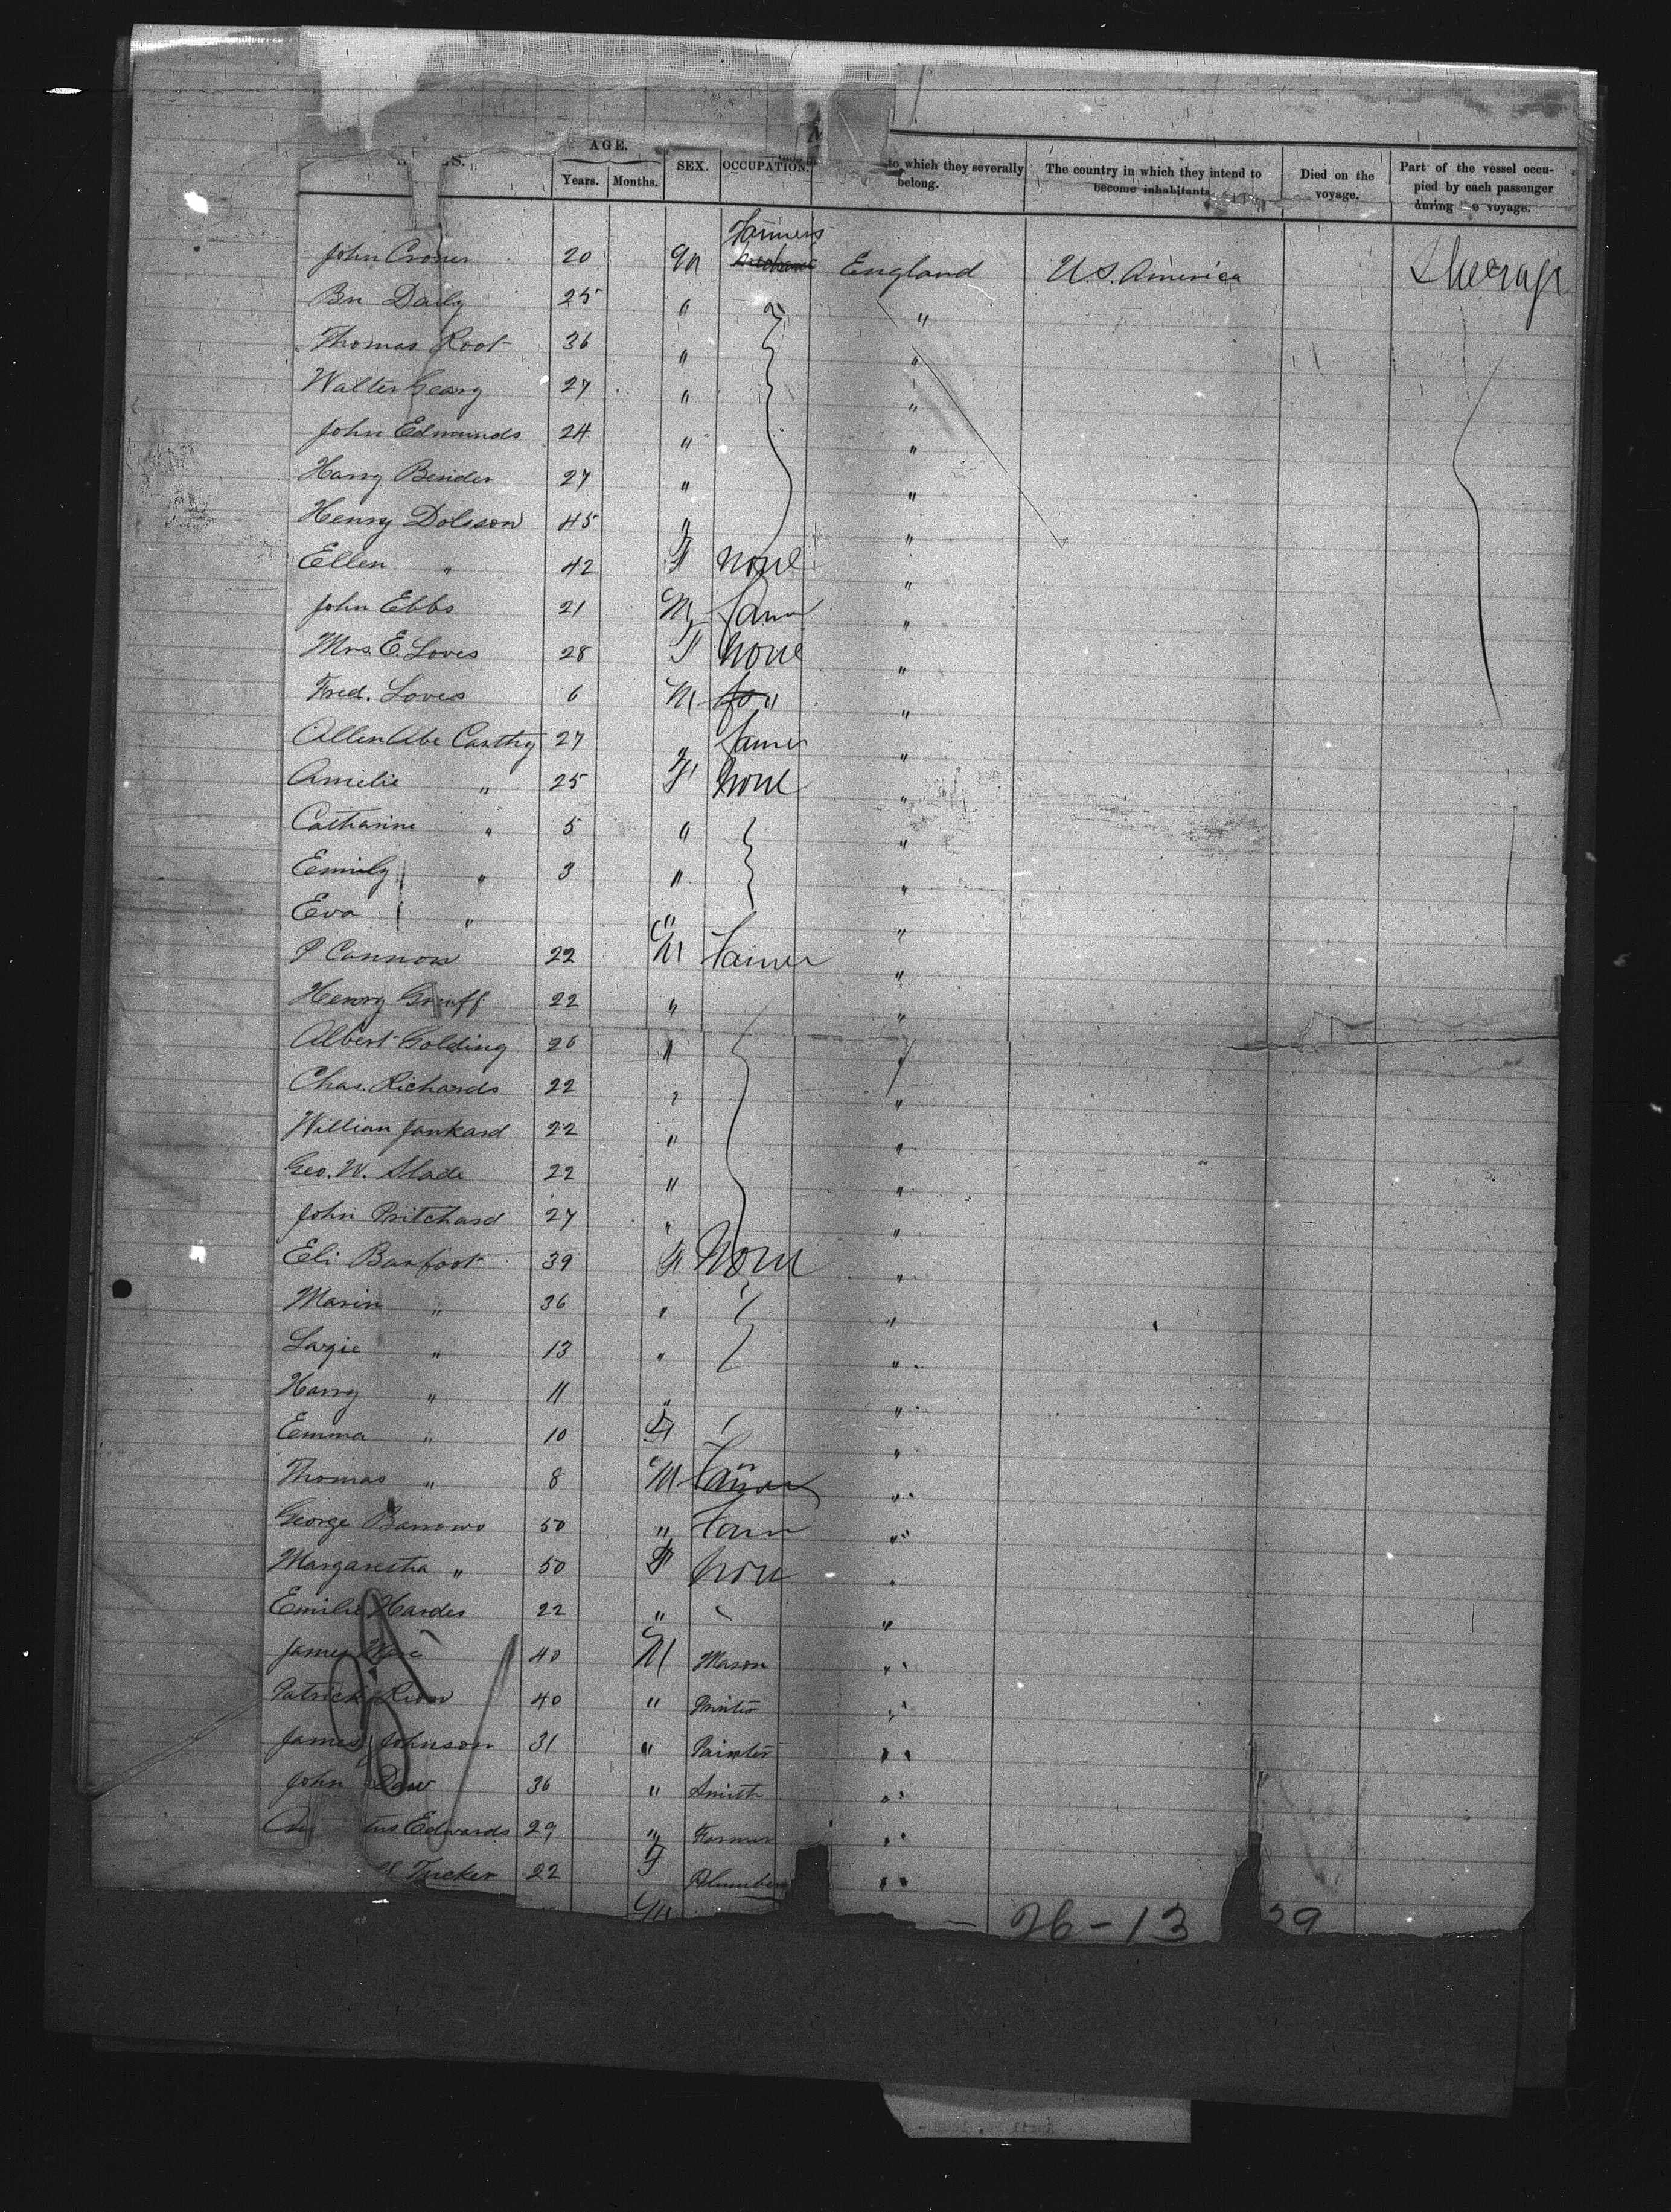 AGE. SEX. OCCUPATION. to which they severally belong. The country in which they intend to become inhabitants. Died on the voyage. Part of the vessel occupied by each passenger during voyage.
Years. Months.
Farmers
John Croner 20 M England U.S. America Steerage
Bn Daily 25 " "
Thomas Root 36 " "
Walter Geary 27 " "
John Edmunds 24 " "
Harry Bender 27 " "
Henry Dolsson 45 " "
Ellen " 42 F none "
John Ebbs 21 M Farmer "
Mrs. E. Loves 28 F none "
Fred. Loves 6 M " "
Allen Abe Carthy 27 " Farmer "
Amelie " 25 F none "
Catharine " 5 " "
Emily " 3 " "
Eva " " "
P Cannon 22 M Farmer "
Henry 22 " "
Albert Golding 26 " "
Chas. Richards 22 " "
Willian Jankard 22 " "
Geo. W. Slade 22 " "
John Pritchard 27 " "
Eli Barfoot 39 None "
Marin " 36 " "
Lizzie " 13 " "
Harry " 11 " "
Emma " 10 F "
Thomas " 8 M "
George Barrows 50 " Farm "
Margaretha " 50 F non "
Emilie Hardes 22 " "
James 40 M Mason "
Patrick 40 " Printer "
James Johnson 31 " Painter "
John Daw 36 " Smith "
Edwards 29 " Farmer "
Tucker 22 F Plumber "
M 26-13 39